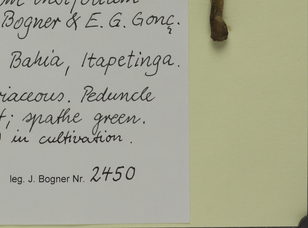 Bogner & E. G. Gonç.
Bahia, Itapetinga.
Peduncle
spathe green.
in cultivation.
leg. J. Bogner Nr. 2450